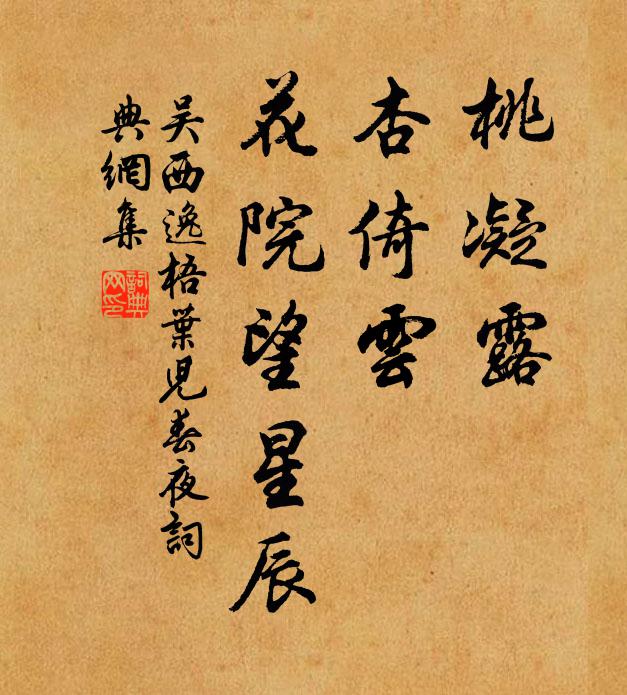 桃凝露
杏倚雲
花院望星辰
吴西逸梧葉兒春夜詞
典網集
詞典网印